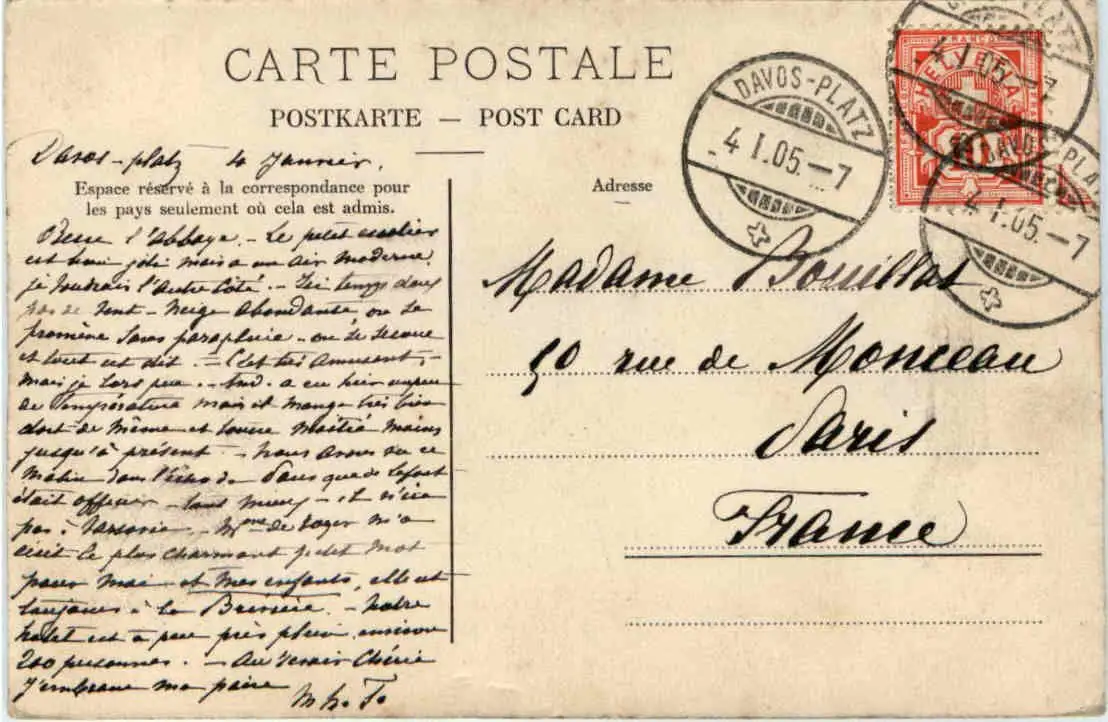 CARTE POSTALE
POSTKARTE — POST CARD
Davos-platz 4 Janvier.
Espace réservé à la correspondance pour
les pays seulement où cela est admis.
Adresse
DAVOS-PLATZ
4 I.05.—7
DAVOS-PLATZ
4 I.05.—7
DAVOS-PLA
4 I.05.—7
FRANCO
HELVETIA
10
l'Abbaye. - Le petit escalier
est joli mais a un air moderne,
je voudrais l'autre côté. - Ici temps doux
pas de vent - Neige abondante, on se
promène sans parapluie - on se secoue
et tout est dit. - C'est très amusant -
mais je sors peu. - a eu hier un peu
de température mais il mange très bien
dort de même et tousse moitié moins
jusqu'à présent. - Nous avons vu ce
matin dans l'écho de Paris que de
était officier - tant mieux - et
pas à - Mme de m'a
écrit le plus charmant petit mot
pour moi et mes enfants, elle est
toujours à la - Notre
hotel est à peu près plein, environ
200 personnes. - Au revoir Chérie
J'embrasse
Madame Bouillat
50 rue de Monceau
Paris
France